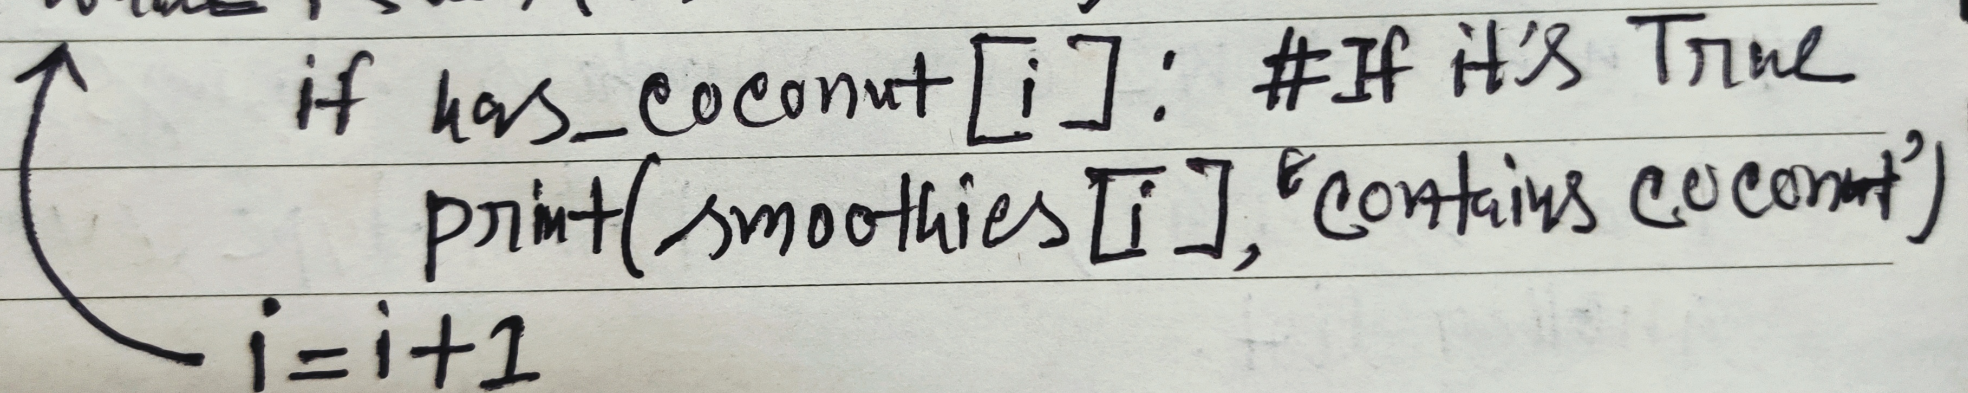 if has_coconut[i]: #If it's True
print(smoothies[i], 'contains coconut')
i=i+1